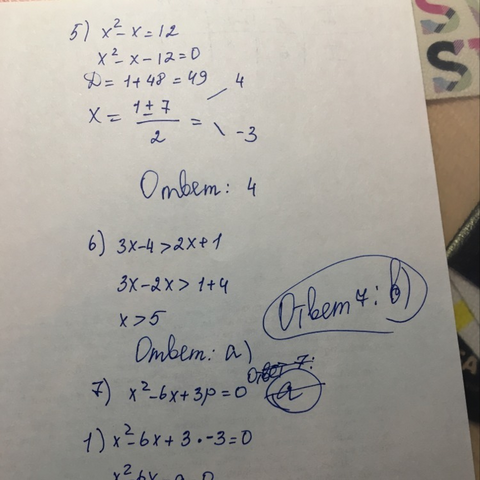 5) x²-x=12
x²-x-12=0
D=1+48=49
x = (1±7)/2 = 4
-3
Ответ: 4
6) 3x-4>2x+1
3x-2x>1+4
x>5
Ответ: а)
Ответ 7: b)
7) x²-6x+3p=0
а
1) x²-6x+3·-3=0